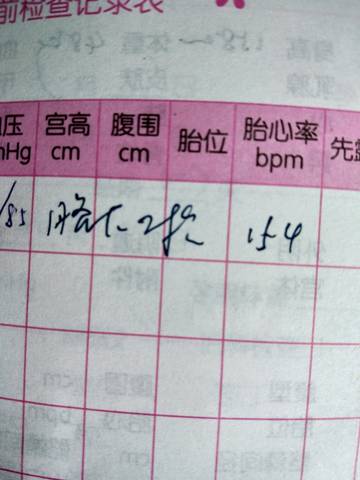 前检查记录表
压 宫高 腹围 胎位 胎心率 先
mHg cm cm bpm
/85 脐下2指 154